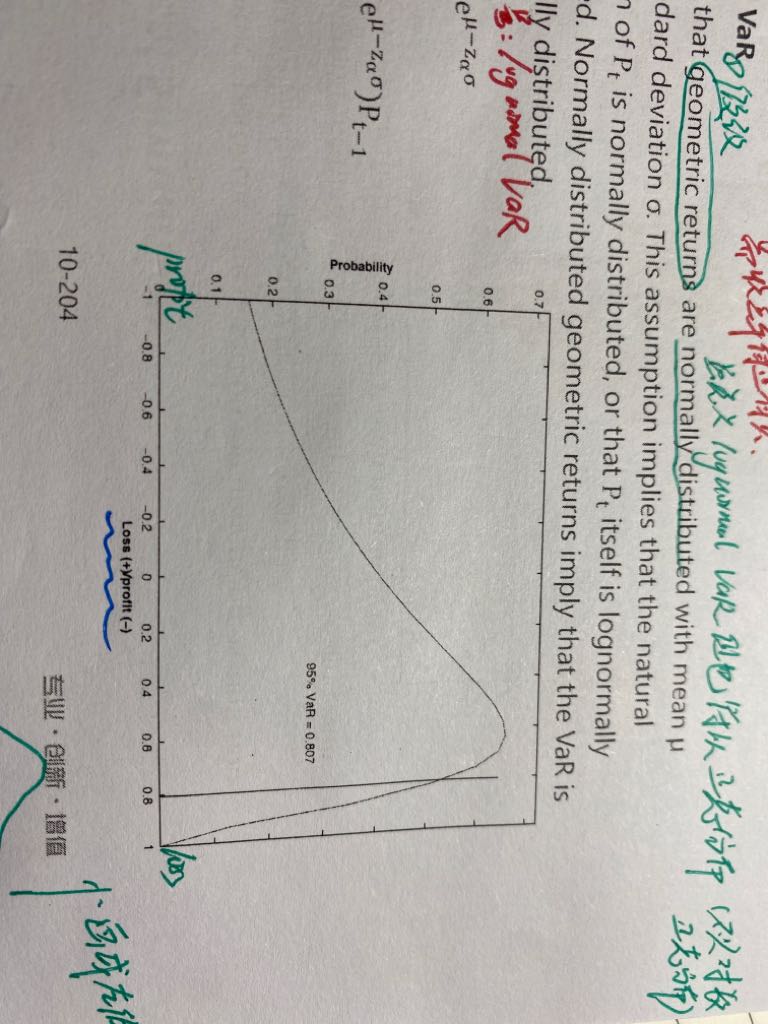 VaR
假设
that geometric returns are normally distributed with mean μ
dard deviation σ. This assumption implies that the natural
n of Pt is normally distributed, or that Pt itself is lognormally
d. Normally distributed geometric returns imply that the VaR is
lly distributed.
lognormal VaR
e^μ−zασ
e^μ−zασ)Pt−1
lognormal VaR
正态分布
对数
正态分布)
0.7
0.6
0.5
0.4
0.3
0.2
0.1
Probability
95% VaR = 0.807
-1
-0.8
-0.6
-0.4
-0.2
0
0.2
0.4
0.6
0.8
1
profit
loss
Loss (+)/profit (−)
10-204
专业·创新·增值